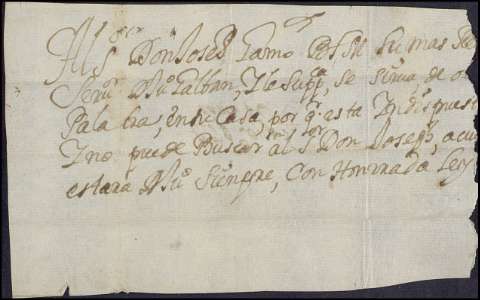 Al Sor Don Joseph Tamo B S M su mas
Seror D Ju Galban, Y le Suppca, se sirva, de o
Palabra, en su Casa, por q esta Yndispuest
Y no puede Buscar al Sor Don Joseph, a cu
estara D Ju Siempre, Con Honrrada Ley